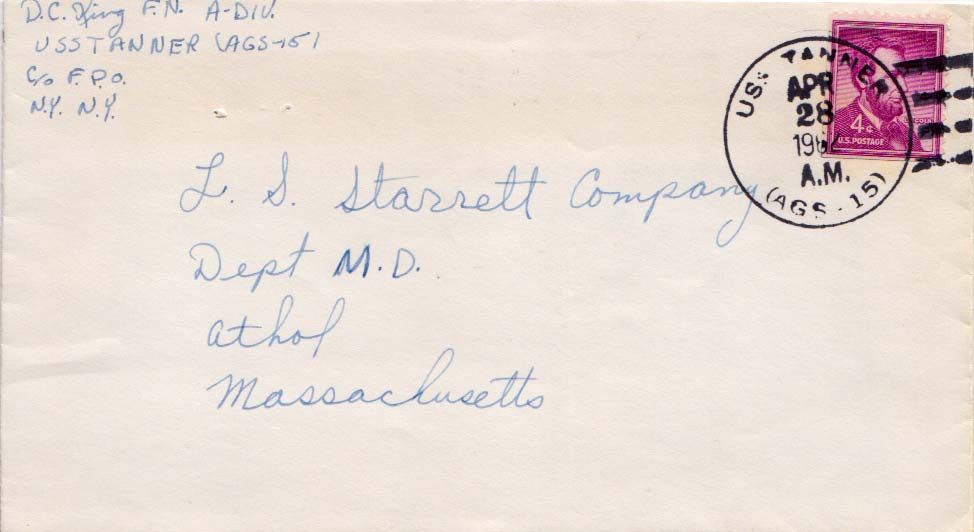 D.C. King F.N. A-DIV.
USS TANNER (AGS-15)
C/o F.P.O.
N.Y. N.Y.
USS TANNER
APR
28
A.M.
(AGS-15)
LINCOLN
4¢
U.S. POSTAGE
L. S. Starrett Company
Dept M.D.
Athol
Massachusetts